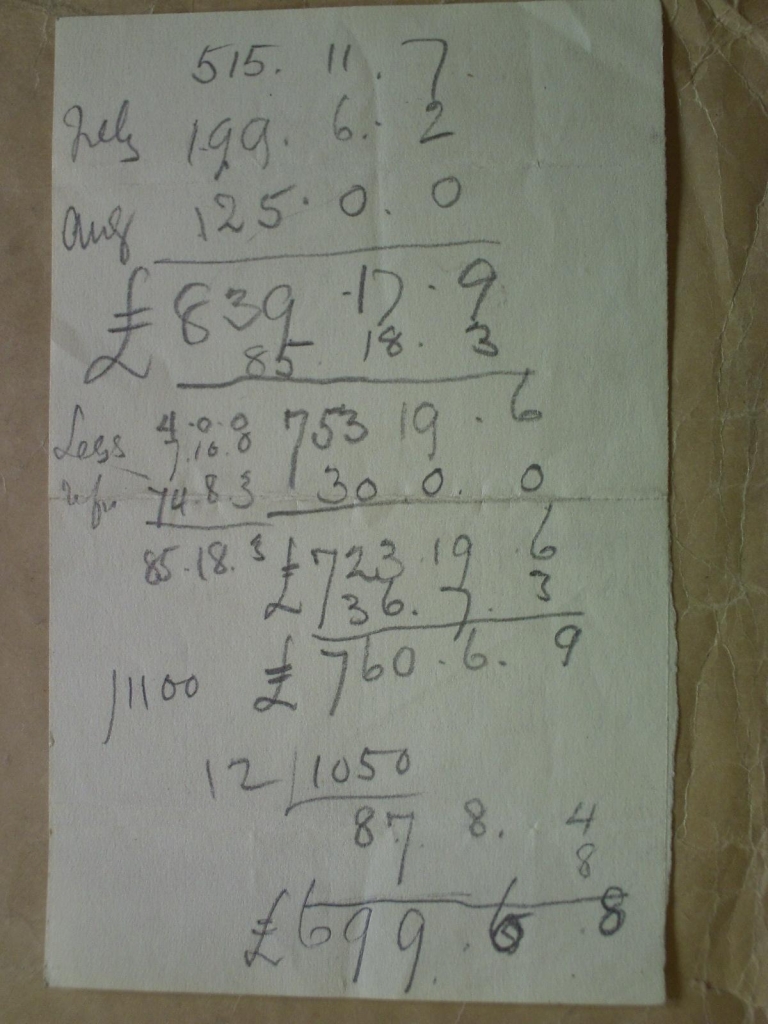 515. 11. 7.
July 199. 6. 2
Aug 125. 0. 0
£ 839 . 17 . 9
85 18. 3
Less 4.0.0 753 19 . 6
7.10.0
74.8.3 30.0. 0
85.18.3 £ 723 19 6
36. 7. 3
/1100 £ 760.6. 9
12 | 1050
87 8. 4
8
£ 699 . 6 . 8